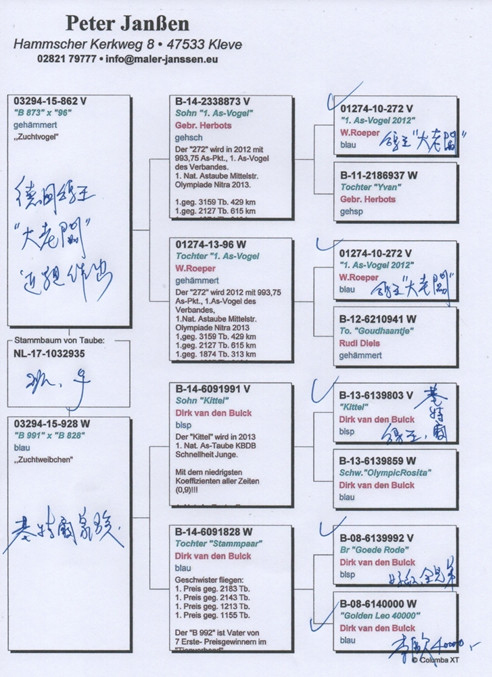 Peter Janßen
Hammscher Kerkweg 8 • 47533 Kleve
02821 79777 • info@maler-janssen.eu
03294-15-862 V
"B 873" x "96"
gehämmert
„Zuchtvogel"
德國鴿王
"大老闆"
近親作出
Stammbaum von Taube:
NL-17-1032935
03294-15-928 W
"B 991" x "B 828"
blau
„Zuchtweibchen"
基特爾
B-14-2338873 V
Sohn "1. As-Vogel"
Gebr. Herbots
gehsch
Der "272" wird in 2012 mit
993,75 As-Pkt., 1. As-Vogel
des Verbandes.
1. Nat. Astaube Mittelstr.
Olympiade Nitra 2013.
1.geg. 3159 Tb. 429 km
1.geg. 2127 Tb. 615 km
01274-13-96 W
Tochter "1. As-Vogel
W.Roeper
gehämmert
Der "272" wird 2012 mit 993,75
As-Pkt., 1.As-Vogel des
Verbandes,
1.Nat. Astaube Mittelstr.
Olympiade Nitra 2013
1.geg. 3159 Tb. 429 km
1.geg. 2127 Tb. 615 km
1.geg. 1874 Tb. 313 km
B-14-6091991 V
Sohn "Kittel"
Dirk van den Bulck
blsp
Der "Kittel" wird in 2013
1. Nat. As-Taube KBDB
Schnellheit Junge.
Mit dem niedrigsten
Koeffizienten aller Zeiten
(0,9)!!!
B-14-6091828 W
Tochter "Stammpaar"
Dirk van den Bulck
blau
Geschwister fliegen:
1. Preis geg. 2183 Tb.
1. Preis geg. 2143 Tb.
1. Preis geg. 1213 Tb.
1. Preis geg. 1155 Tb.
Der "B 992" ist Vater von
7 Erste- Preisgewinnern im
01274-10-272 V
"1. As-Vogel 2012"
W.Roeper
blau
鴿王"大老闆"
B-11-2186937 W
Tochter "Yvan"
Gebr. Herbots
gehsp
01274-10-272 V
"1. As-Vogel 2012"
W.Roeper
blau
鴿王"大老闆"
B-12-6210941 W
To. "Goudhaantje"
Rudi Diels
gehämmert
B-13-6139803 V
"Kittel"
Dirk van den Bulck
blsp
基特爾
鴿王
B-13-6139859 W
Schw."OlympicRosita"
Dirk van den Bulck
blau
B-08-6139992 V
Br "Goede Rode"
Dirk van den Bulck
blsp
全兄弟
B-08-6140000 W
"Golden Leo 40000"
Dirk van den Bulck
blau
40000
© Columba XT